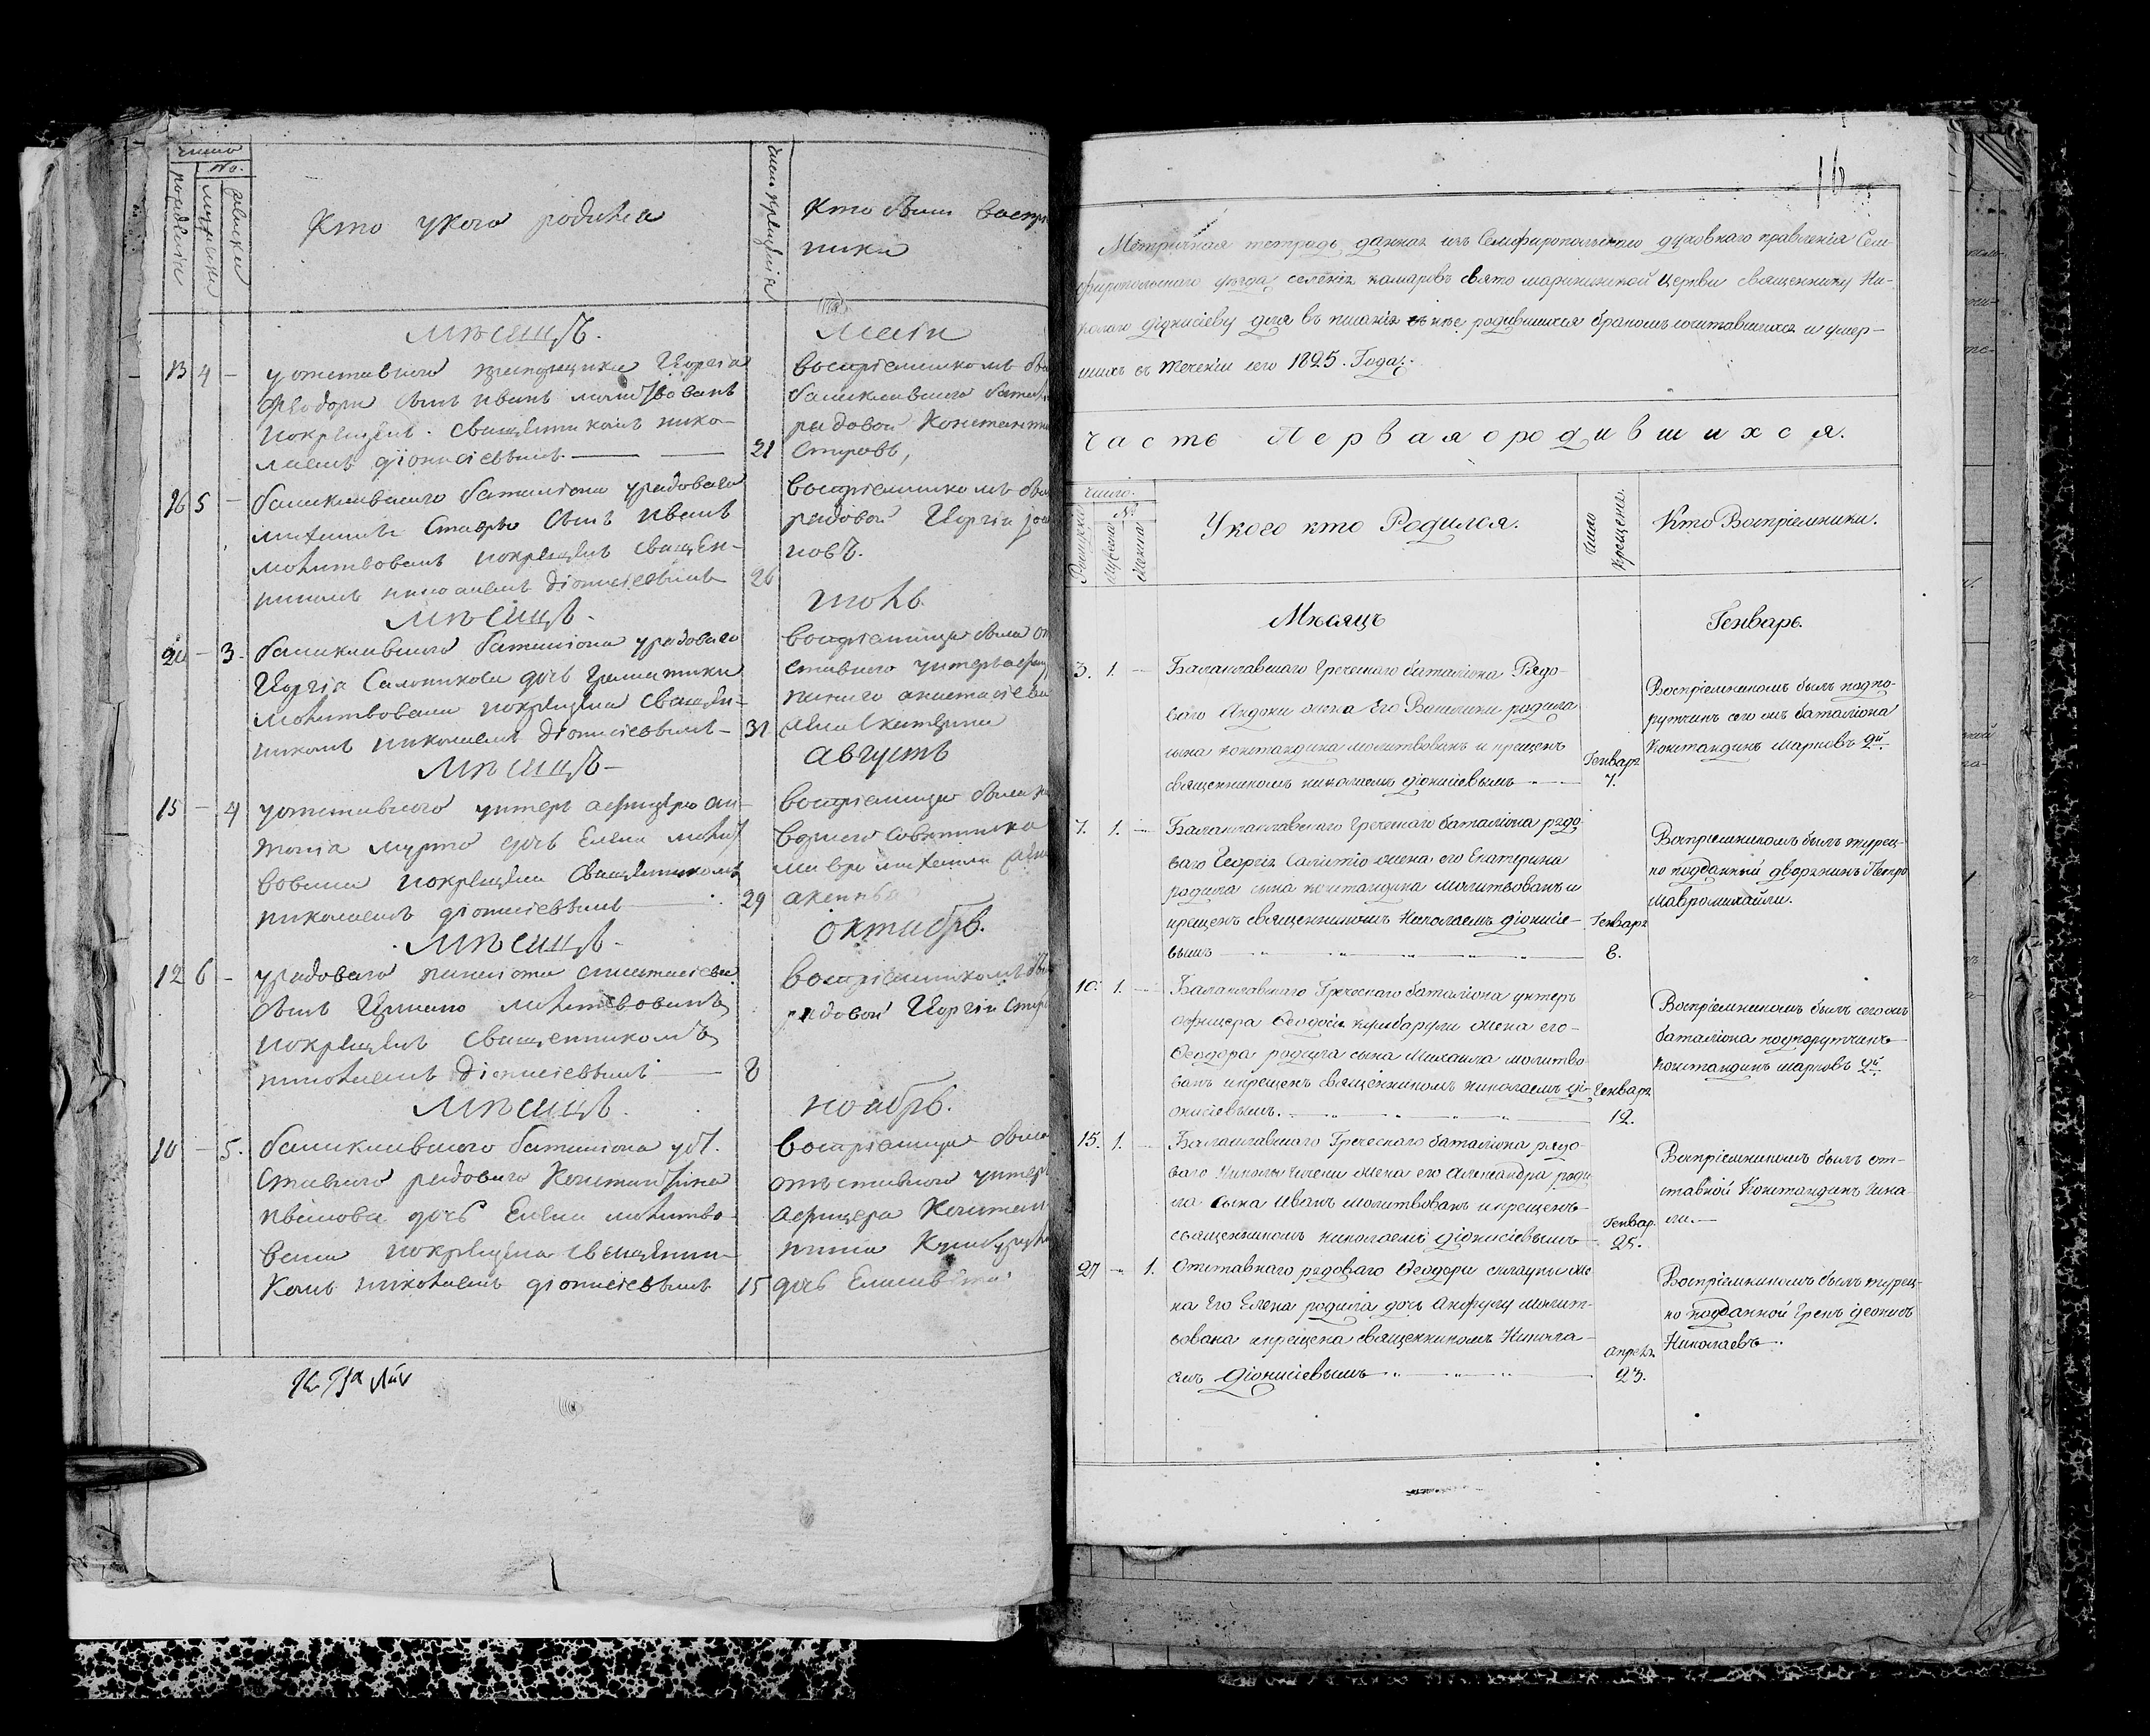 число
No.
рождения
мужеска
женски
Кто укого родился
число крещения
Кто были воспри
ники
Мѣсяцъ.
маія
13 4 -
уотставного Георгія
Феодори сынъ иванъ молитвованъ
покрещенъ. священникомъ нико-
лаемъ діонисіевымъ
21
воспріемникомъ бы
балаклавского батал
рядовой Константи
Ставровъ,
26 5 -
балаклавского баталіона урядоваго
михаила Ставро сынъ иванъ
молитвованъ покрещенъ священ-
никомъ николаемъ діонисіевымъ
26
воспріемникомъ бы
рядовой Георгій
новъ.
Мѣсяцъ.
июль
24 - 3.
балаклавского баталіона урядоваго
Георгія Салоникова дочь
молитвована покрещена священ-
никомъ николаемъ діонисіевымъ -
31
воспріемница была от
ставного унтерафиц
екатерина
Мѣсяцъ -
августъ
15 - 4
уотставного унтеръ афицера ан-
тонія мурто дочь Елена молит
вована покрещена священникомъ
николаемъ діонисіевымъ
29
воспріемница была на
ворного совѣтника
мавро михаили
Мѣсяцъ -
октябрь.
12 6 -
урядоваго панаіота анастасіева
сынъ молитвованъ
покрещенъ священникомъ
николаемъ діонисіевымъ
8
воспріемникомъ бы
рядовой Георгій
Мѣсяцъ.
ноябрь.
10 - 5.
балаклавского баталіона уот.
ставного рядоваго Константина
иванова дочь Елена молитво-
вана покрещена священни-
комъ николаемъ діонисіевымъ
15
воспріемница была
отъставного унтеръ
афицера Констан
тина
дочь Елисавета
16
Метрическая тетрадь данная изъ Семферопольского духовнаго правленія Сем-
феропольскаго уѣзда, селенія камаровъ свято марининской церкви священнику Ни-
колаю діонисіеву для вписанія родившихся бракомъ сочитавшихся и умер-
шихъ въ теченіи сего 1825. Года:
Часть Первая ородившихся.
число.
No
Рожденія
Мужеска
Женска
Укого кто Родился.
число крещенія.
Кто Воспріемники.
Мѣсяцъ
Генварь.
3. 1. -
Балаклавскаго Греческаго баталіона Рядо-
ваго Андони жена Его Василики родила
сына константина молитвованъ и крещенъ
священникомъ николаемъ діонисіевымъ
Генваря
7.
Воспріемникомъ былъ подпо-
рутчикъ сего жъ баталіона
Константинъ марковъ 2й
7. 1. -
Балаклавскаго Греческаго баталіона рядо
ваго Георгія жена его Екатерина
родила сына константина молитвованъ и
крещенъ священникомъ Николаемъ діонисіе-
вымъ
Генваря
8.
Воспріемникомъ былъ турец-
ко подданный дворянинъ Петро
мавромихайли.
10. 1. -
Балаклавскаго Греческаго баталіона унтеръ
офицера Ѳеодосія кумбарули жена его-
Ѳеодора родила сына михаила молитво
ванъ икрещенъ священникомъ николаемъ ді-
онисіевымъ.
Генваря
12.
Воспріемникомъ былъ сегожъ
баталіона подпорутчикъ
константинъ марковъ 2й
15. 1. -
Балаклавскаго Греческаго баталіона рядо-
ваго Николы жена его Александра роди
ла сына иванъ молитвованъ икрещенъ-
священникомъ николаемъ діонисіевымъ
Генвар.
25.
Воспріемникомъ былъ от-
ставной Константинъ Гина-
ли.-
27 - 1.
Отставнаго рядоваго Ѳеодора же
на Его Елена родила дочь молит-
вована икрещена священникомъ Никола-
емъ Діонисіевымъ
Апреля
23.
Воспріемникомъ былъ турец-
ко подданной Грекъ
Николаевъ.